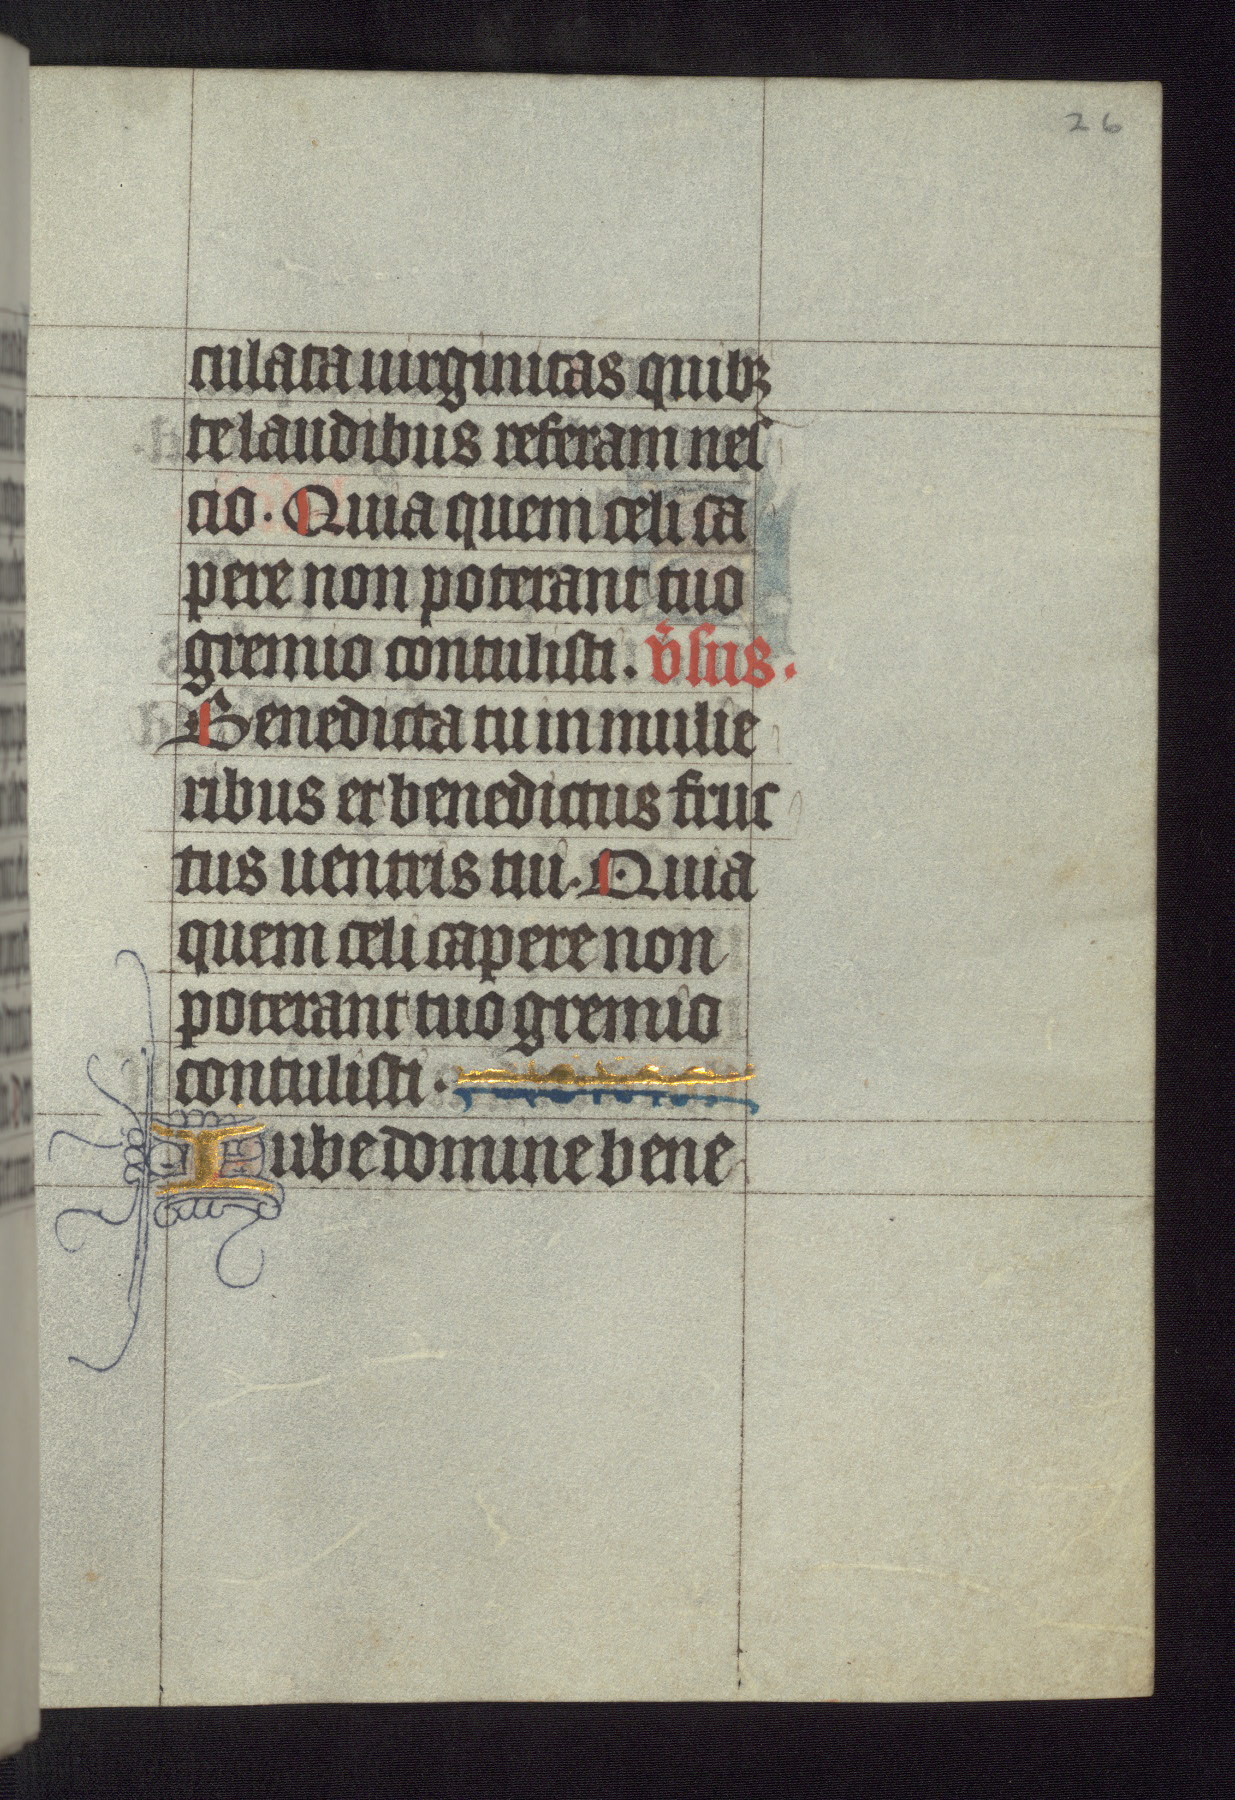 26
culata uirginitas quibꝫ
te laudibus referam nes
cio. Quia quem celi ca
pere non poterant tuo
gremio contulisti. v̄sus.
Benedicta tu in mulie
ribus et benedictus fruc
tus uentris tui. Quia
quem celi capere non
poterant tuo gremio
contulisti.
Iube domine bene